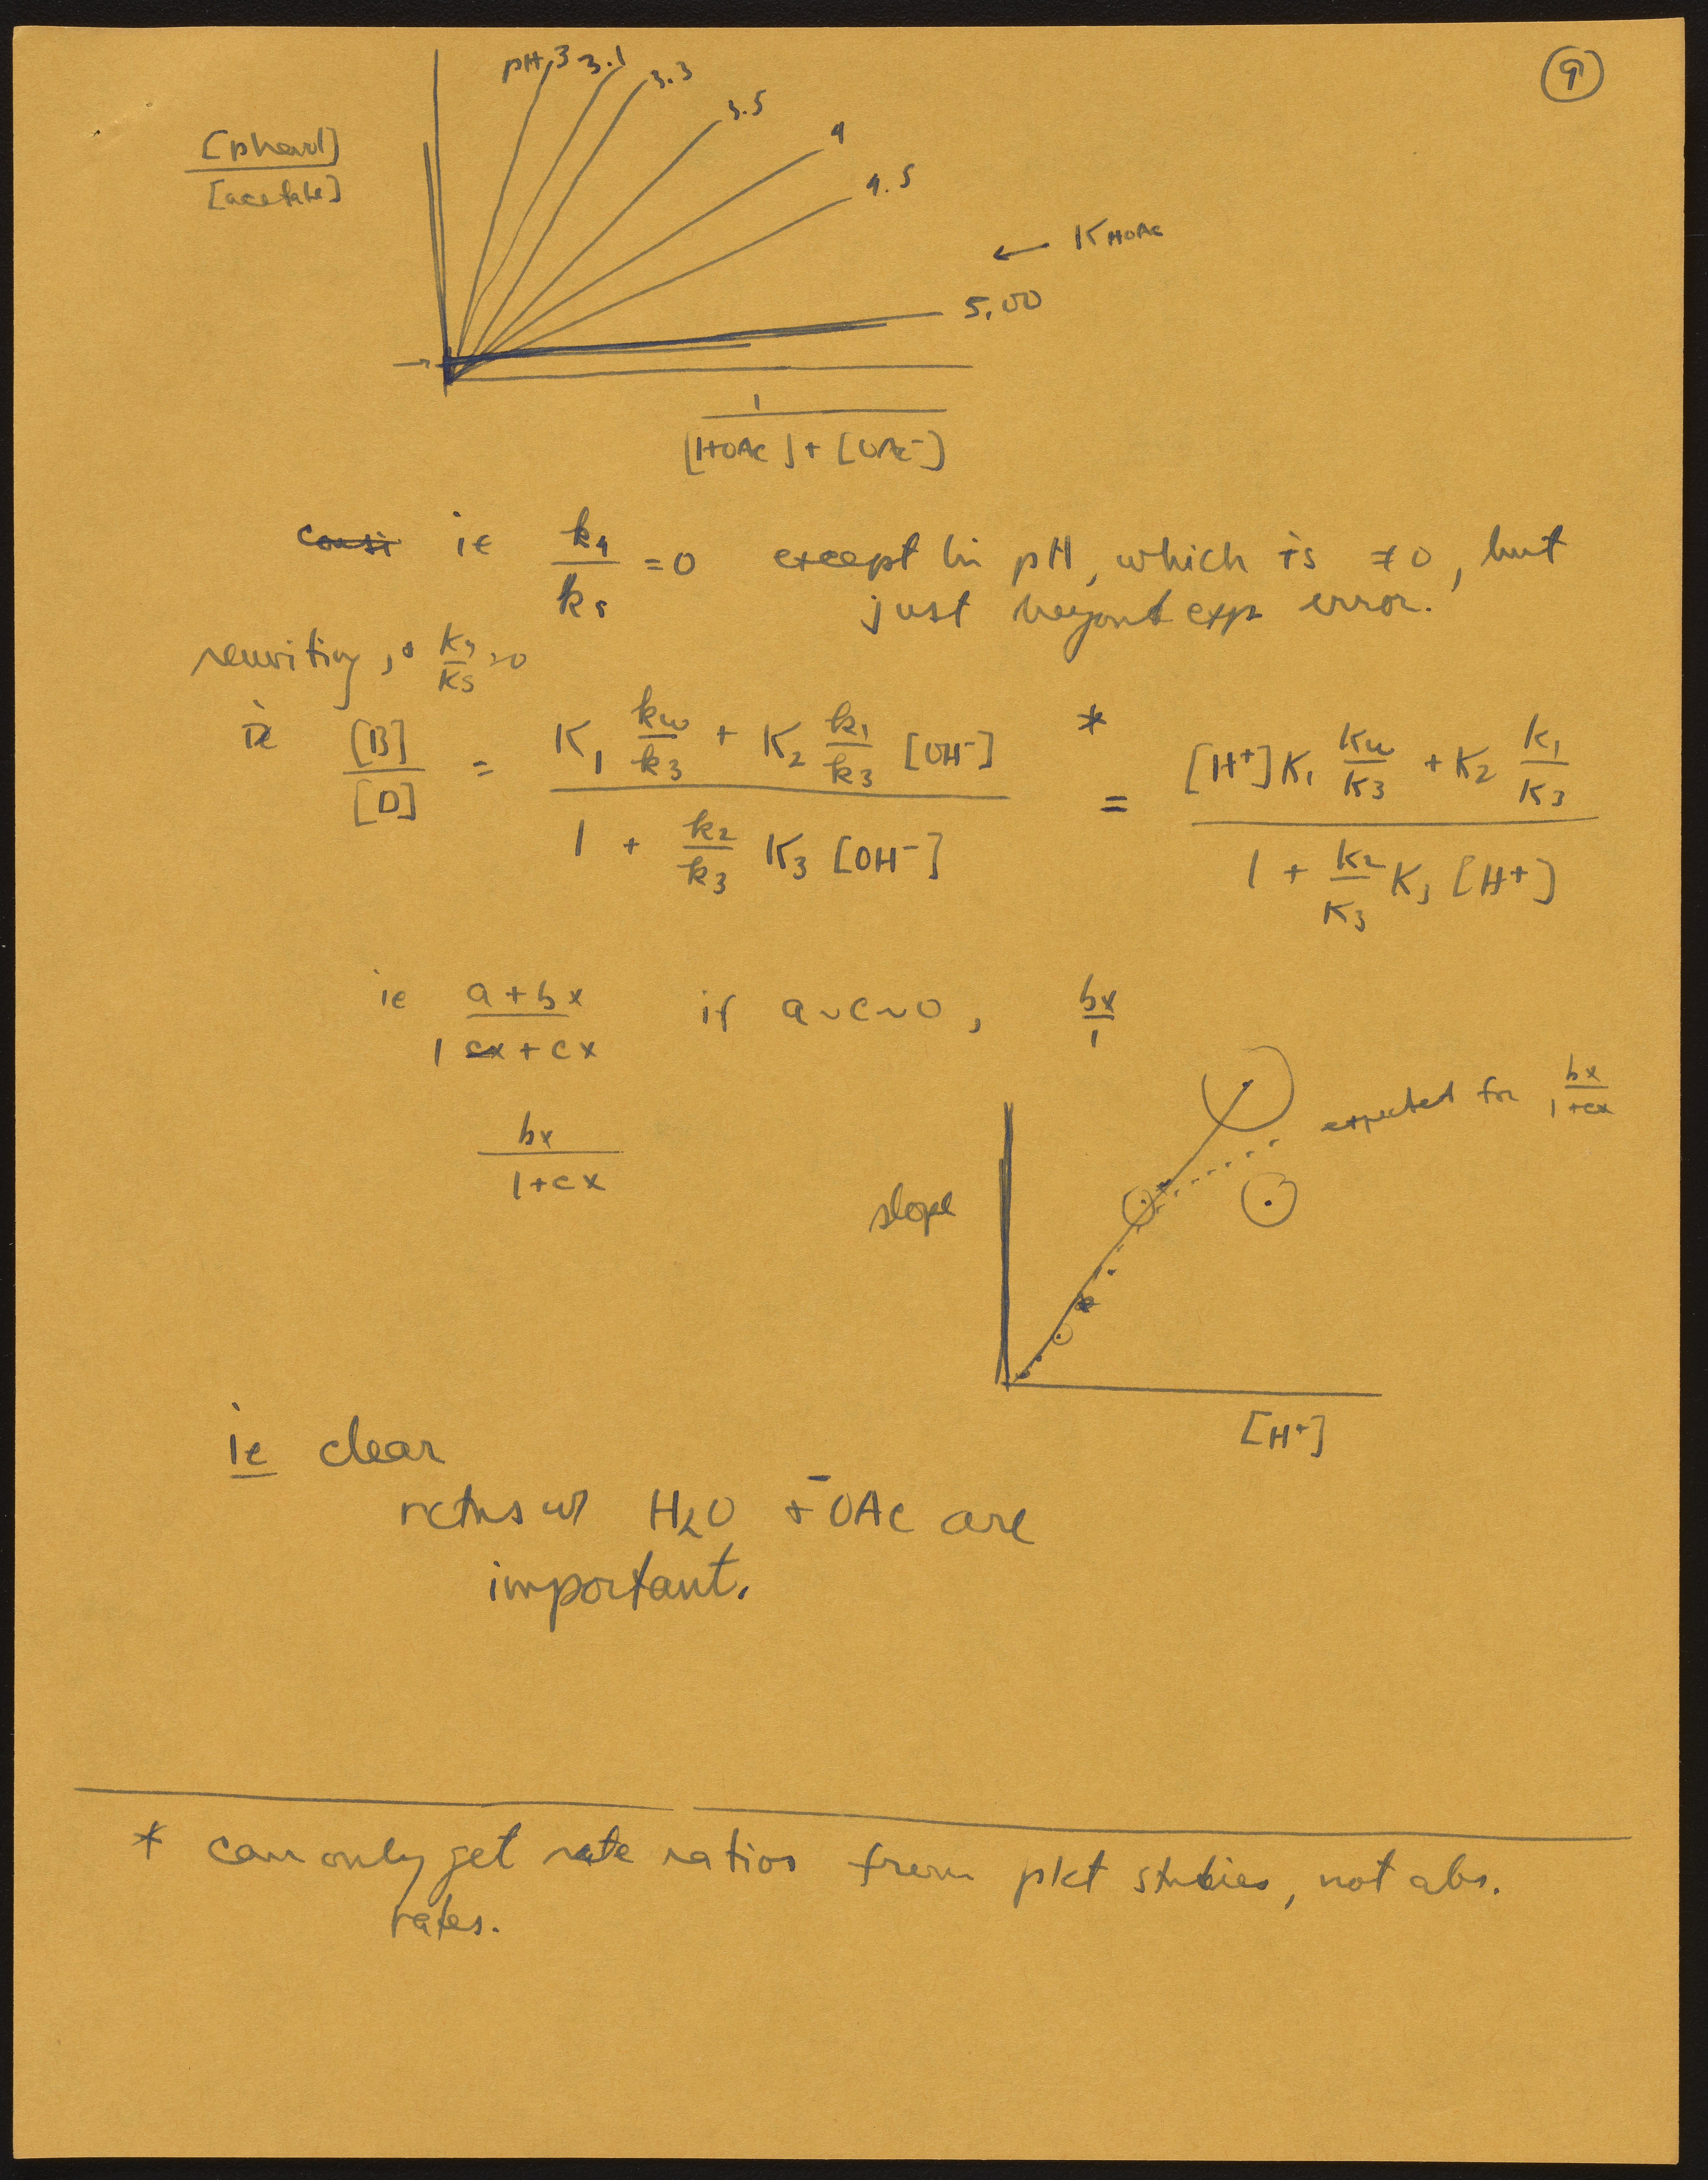 9
pH 3 3.1 3.3 3.5 4 4.5
[phenol]
[acetate]
← K HOAc
5.00
→
1
[HOAc] + [OAc⁻]
consi ie k4/k5 = 0 except hi pH, which is ≠ 0, but
just beyond exp error.
rewriting, k4/k5 → 0
ie [B]/[D] = (K1 kw/k3 + K2 k1/k3 [OH⁻]) / (1 + k2/k3 K3 [OH⁻]) * = ([H⁺] K1 kw/k3 + K2 k1/k3) / (1 + k2/k3 K3 [H⁺])
ie (a + bx) / (1 cx + cx) if a ~ c ~ 0, bx/1
bx/(1+cx)
expected for bx/(1+cx)
slope
[H⁺]
ie clear
rctns w/ H2O + ⁻OAc are
important.
* can only get rate ratios from pkt studies, not abs.
rates.